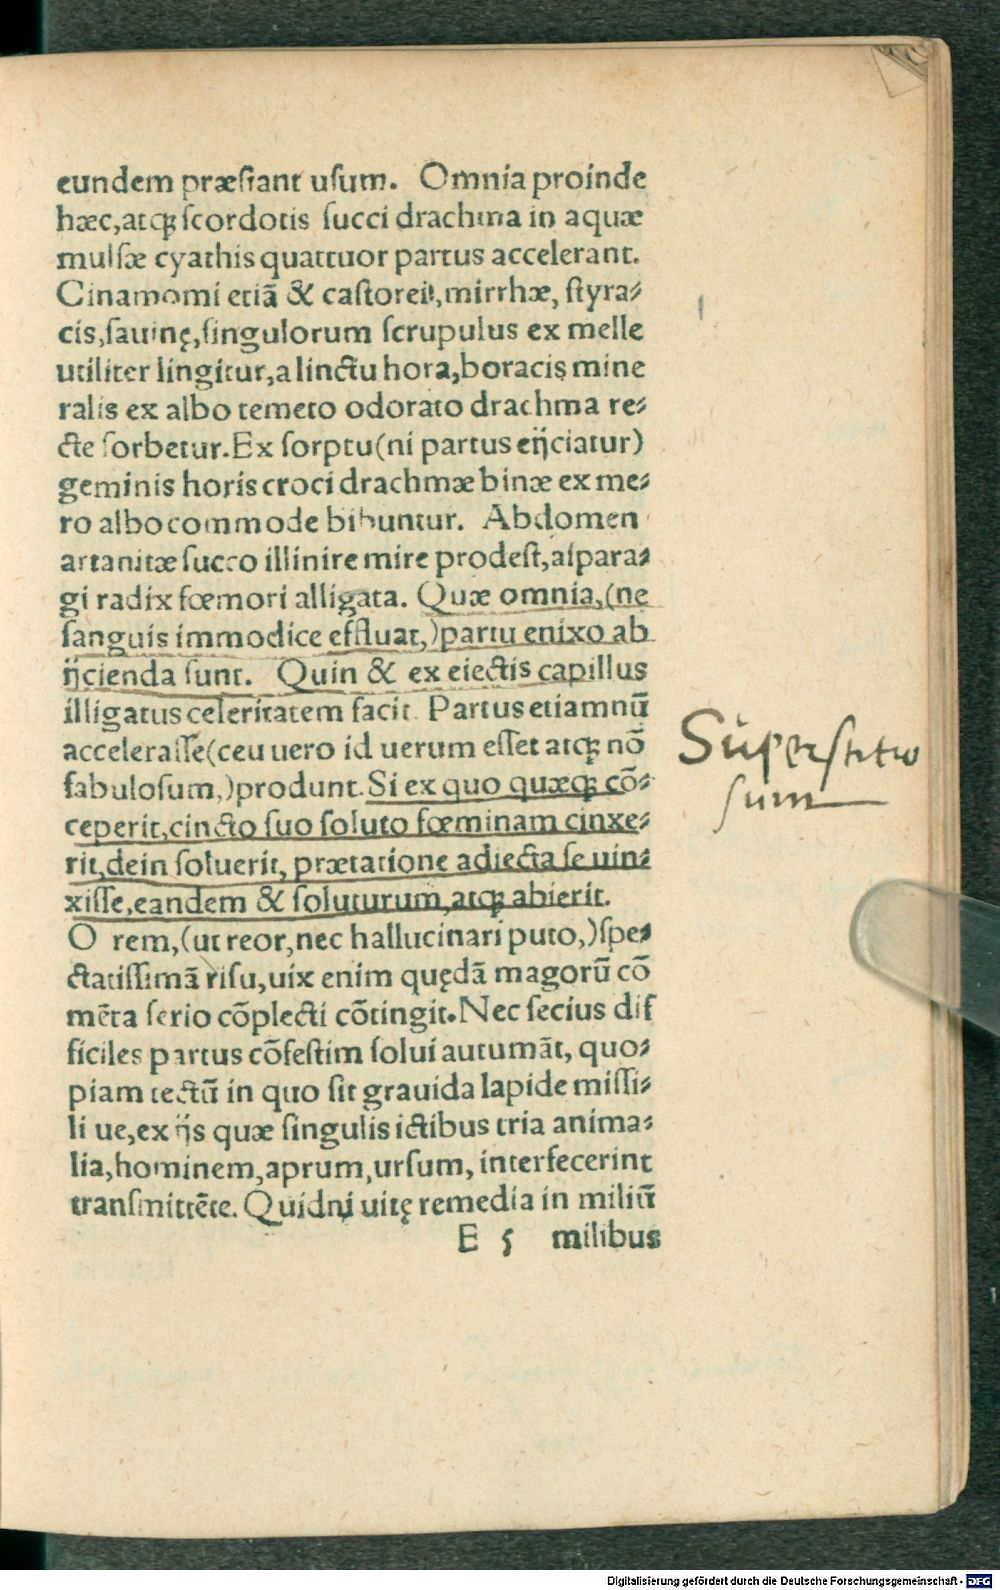 eundem præstant uſum. Omnia proinde
hæc,atqꝫ ſcordotis ſucci drachma in aquæ
mulſæ cyathis quattuor partus accelerant.
Cinamomi etiã & caſtorei,mirrhæ, ſtyra⸗
cis,ſauinę,ſingulorum ſcrupulus ex melle
utiliter lingitur,a linctu hora,boracis mine
ralis ex albo temeto odorato drachma re⸗
cte ſorbetur.Ex ſorptu(ni partus eijciatur)
geminis horis croci drachmæ binæ ex me⸗
ro albo commode bibuntur. Abdomen
artanitæ ſucco illinire mire prodeſt,aſpara⸗
gi radix fœmori alligata. Quæ omnia,(ne
ſanguis immodice effluat,)partu enixo ab
ijcienda ſunt. Quin & ex eiectis capillus
illigatus celeritatem facit. Partus etiamnũ
acceleraſſe(ceu uero id uerum eſſet atqꝫ nõ
fabuloſum,)produnt.Si ex quo quæqꝫ cõ⸗
ceperit,cincto ſuo ſoluto fœminam cinxe⸗
rit,dein ſoluerit, prætatione adiecta ſe uin⸗
xiſſe,eandem & ſoluturum,atqꝫ abierit.
O rem,(ut reor,nec hallucinari puto,)ſpe⸗
ctatiſſimã riſu,uix enim quędã magorũ cõ
mẽta ſerio cõplecti cõtingit.Nec ſecius dif
ficiles partus cõfeſtim ſolui autumãt, quo⸗
piam tectũ in quo ſit grauida lapide miſſi⸗
li ue,ex ijs quæ ſingulis ictibus tria anima⸗
lia,hominem,aprum,urſum, interfecerint
tranſmittẽte. Quidni uitę remedia in miliũ
E 5 milibus
Superſtitio
ſum
Digitalisierung gefördert durch die Deutsche Forschungsgemeinschaft - DFG